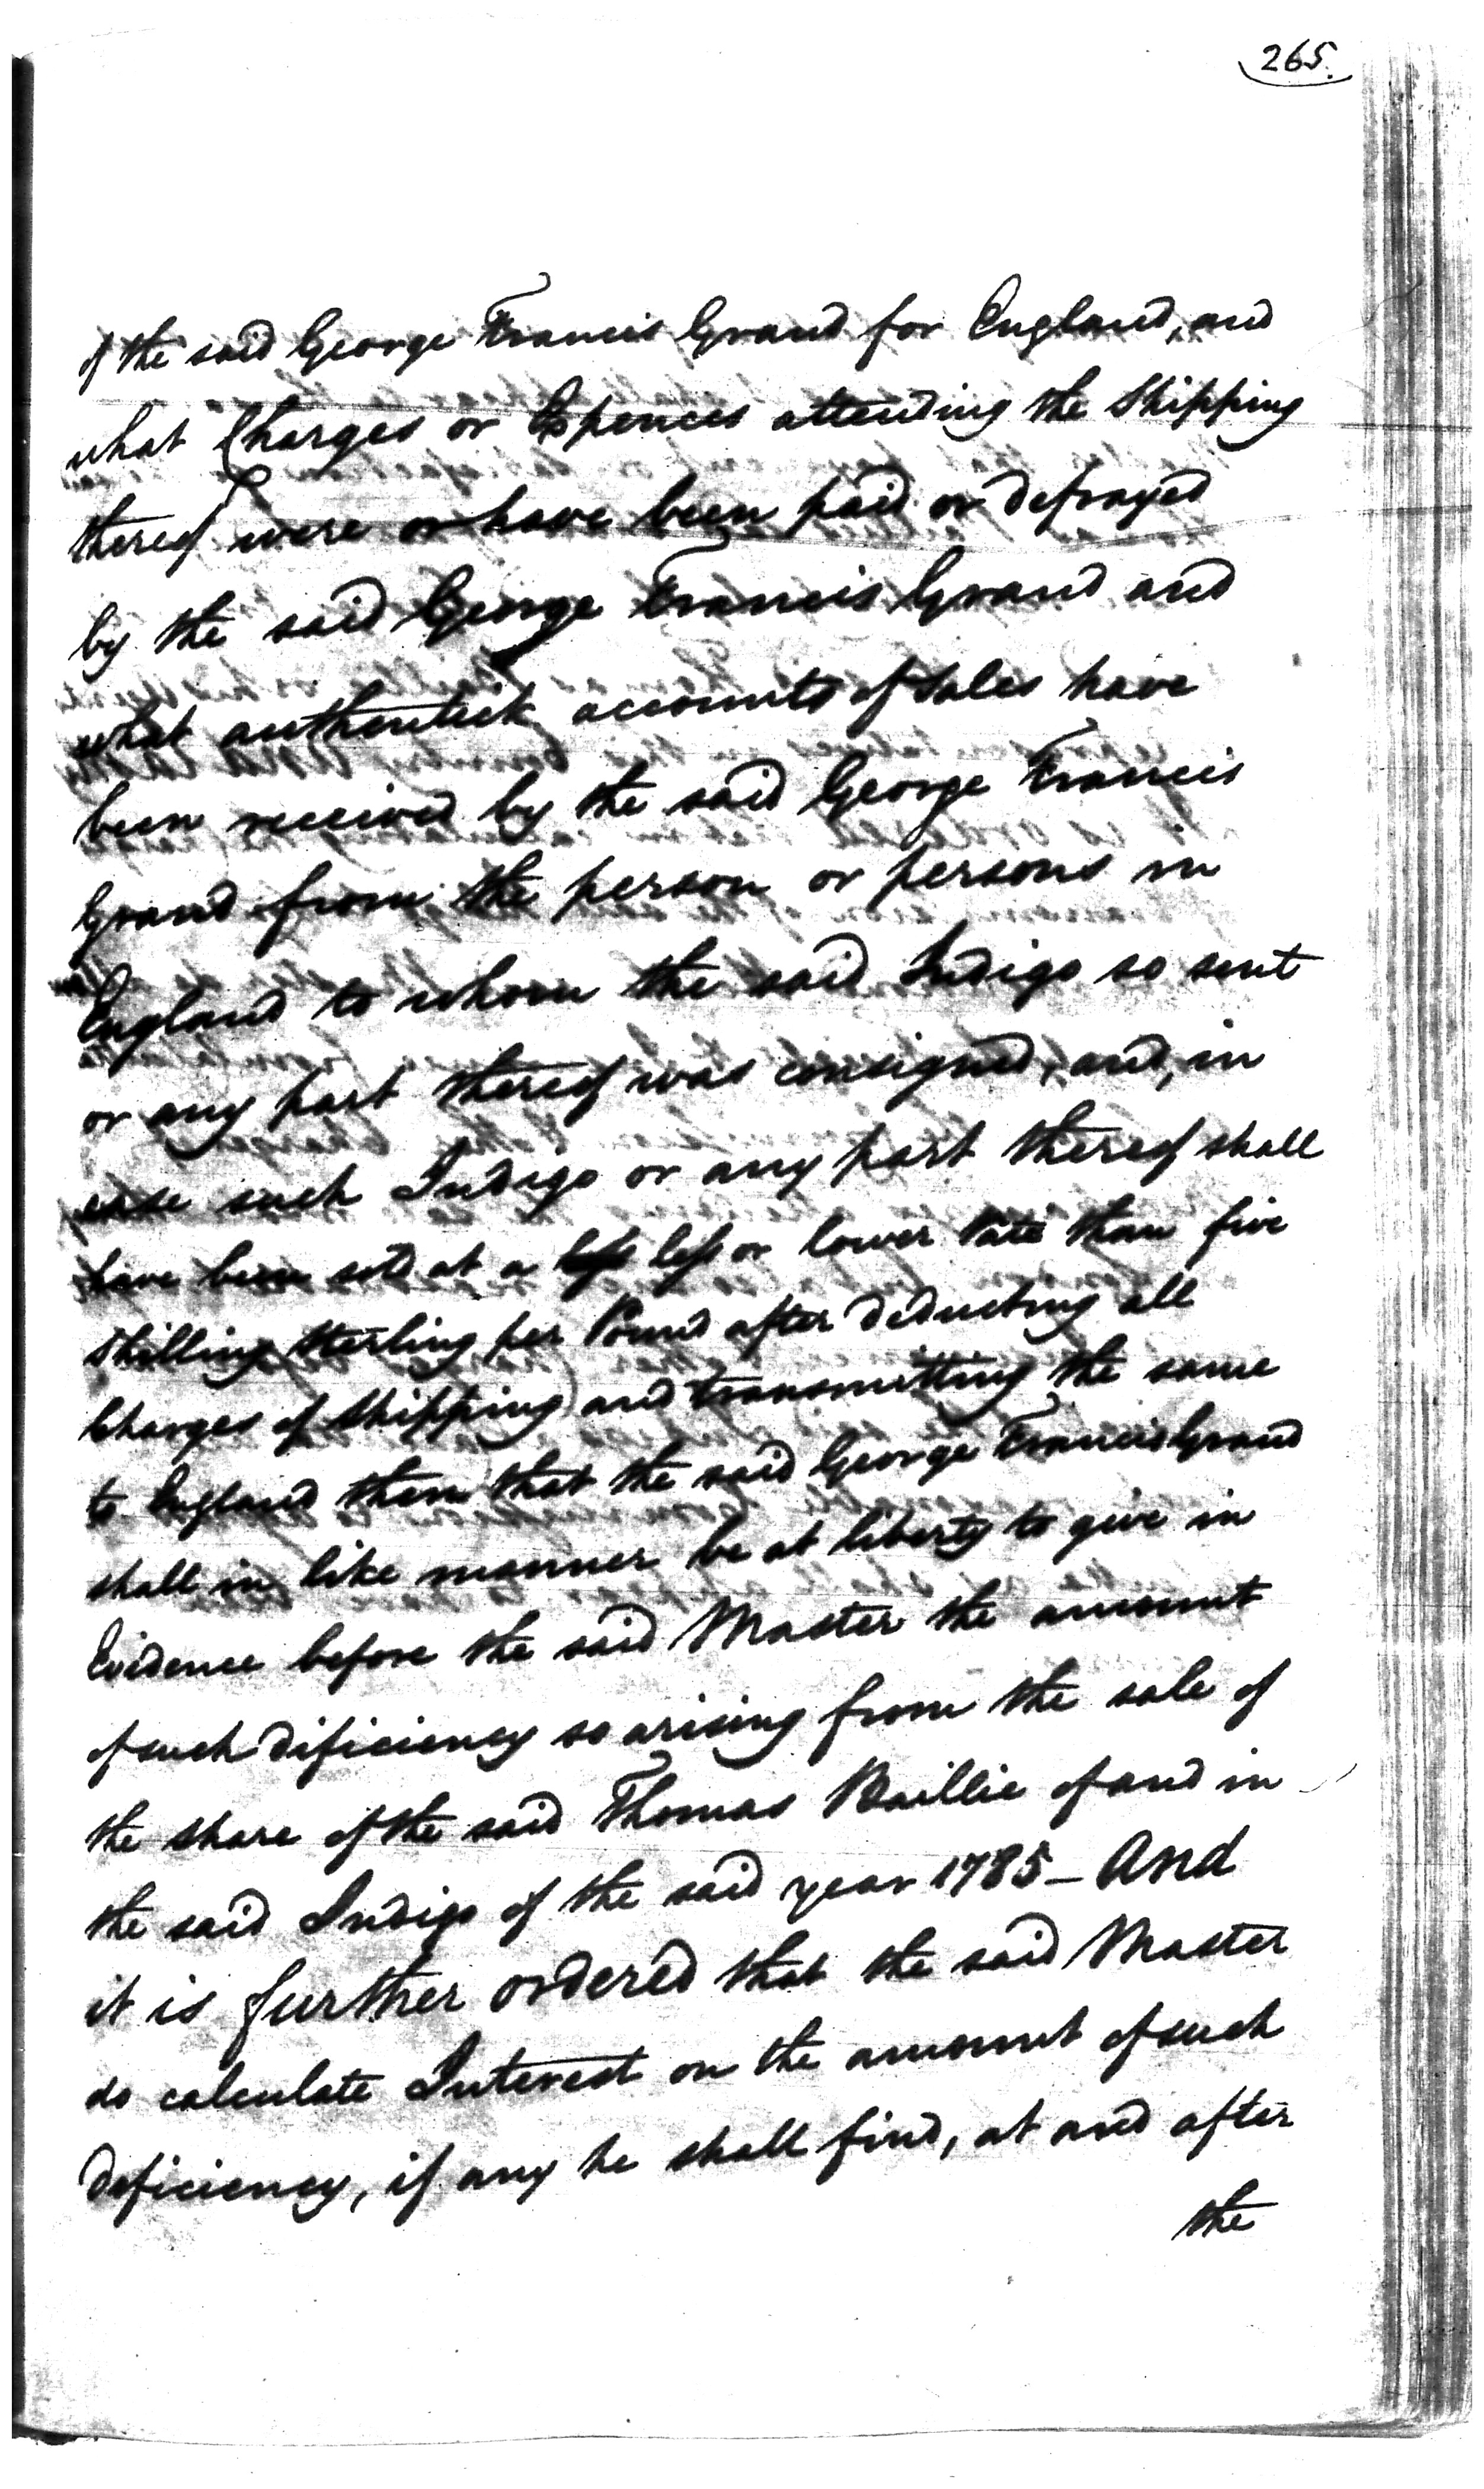 265.
of the said George Francis Grand for England, and
what Charges or Expences attending the Shipping
thereof were or have been paid or defrayed
by the said George Francis Grand and
what authentick accounts of sales have
been received by the said George Francis
Grand from the person or persons in
England to whom the said Indigo so sent
or any part thereof was consigned, and, in
case such Indigo or any part thereof shall
have been sold at a less or lower rate than five
shilling sterling per Pound after deducting all
Charges of Shipping and transmitting the same
to England then that the said George Francis Grand
shall in like manner be at liberty to give in
Evidence before the said Master the amount
of such dificiency so arising from the sale of
the share of the said Thomas Baillie of and in
the said Indigo of the said year 1785 - And
it is further ordered that the said Master
do calculate Interest on the amount of such
deficiency, if any he shall find, at and after
the